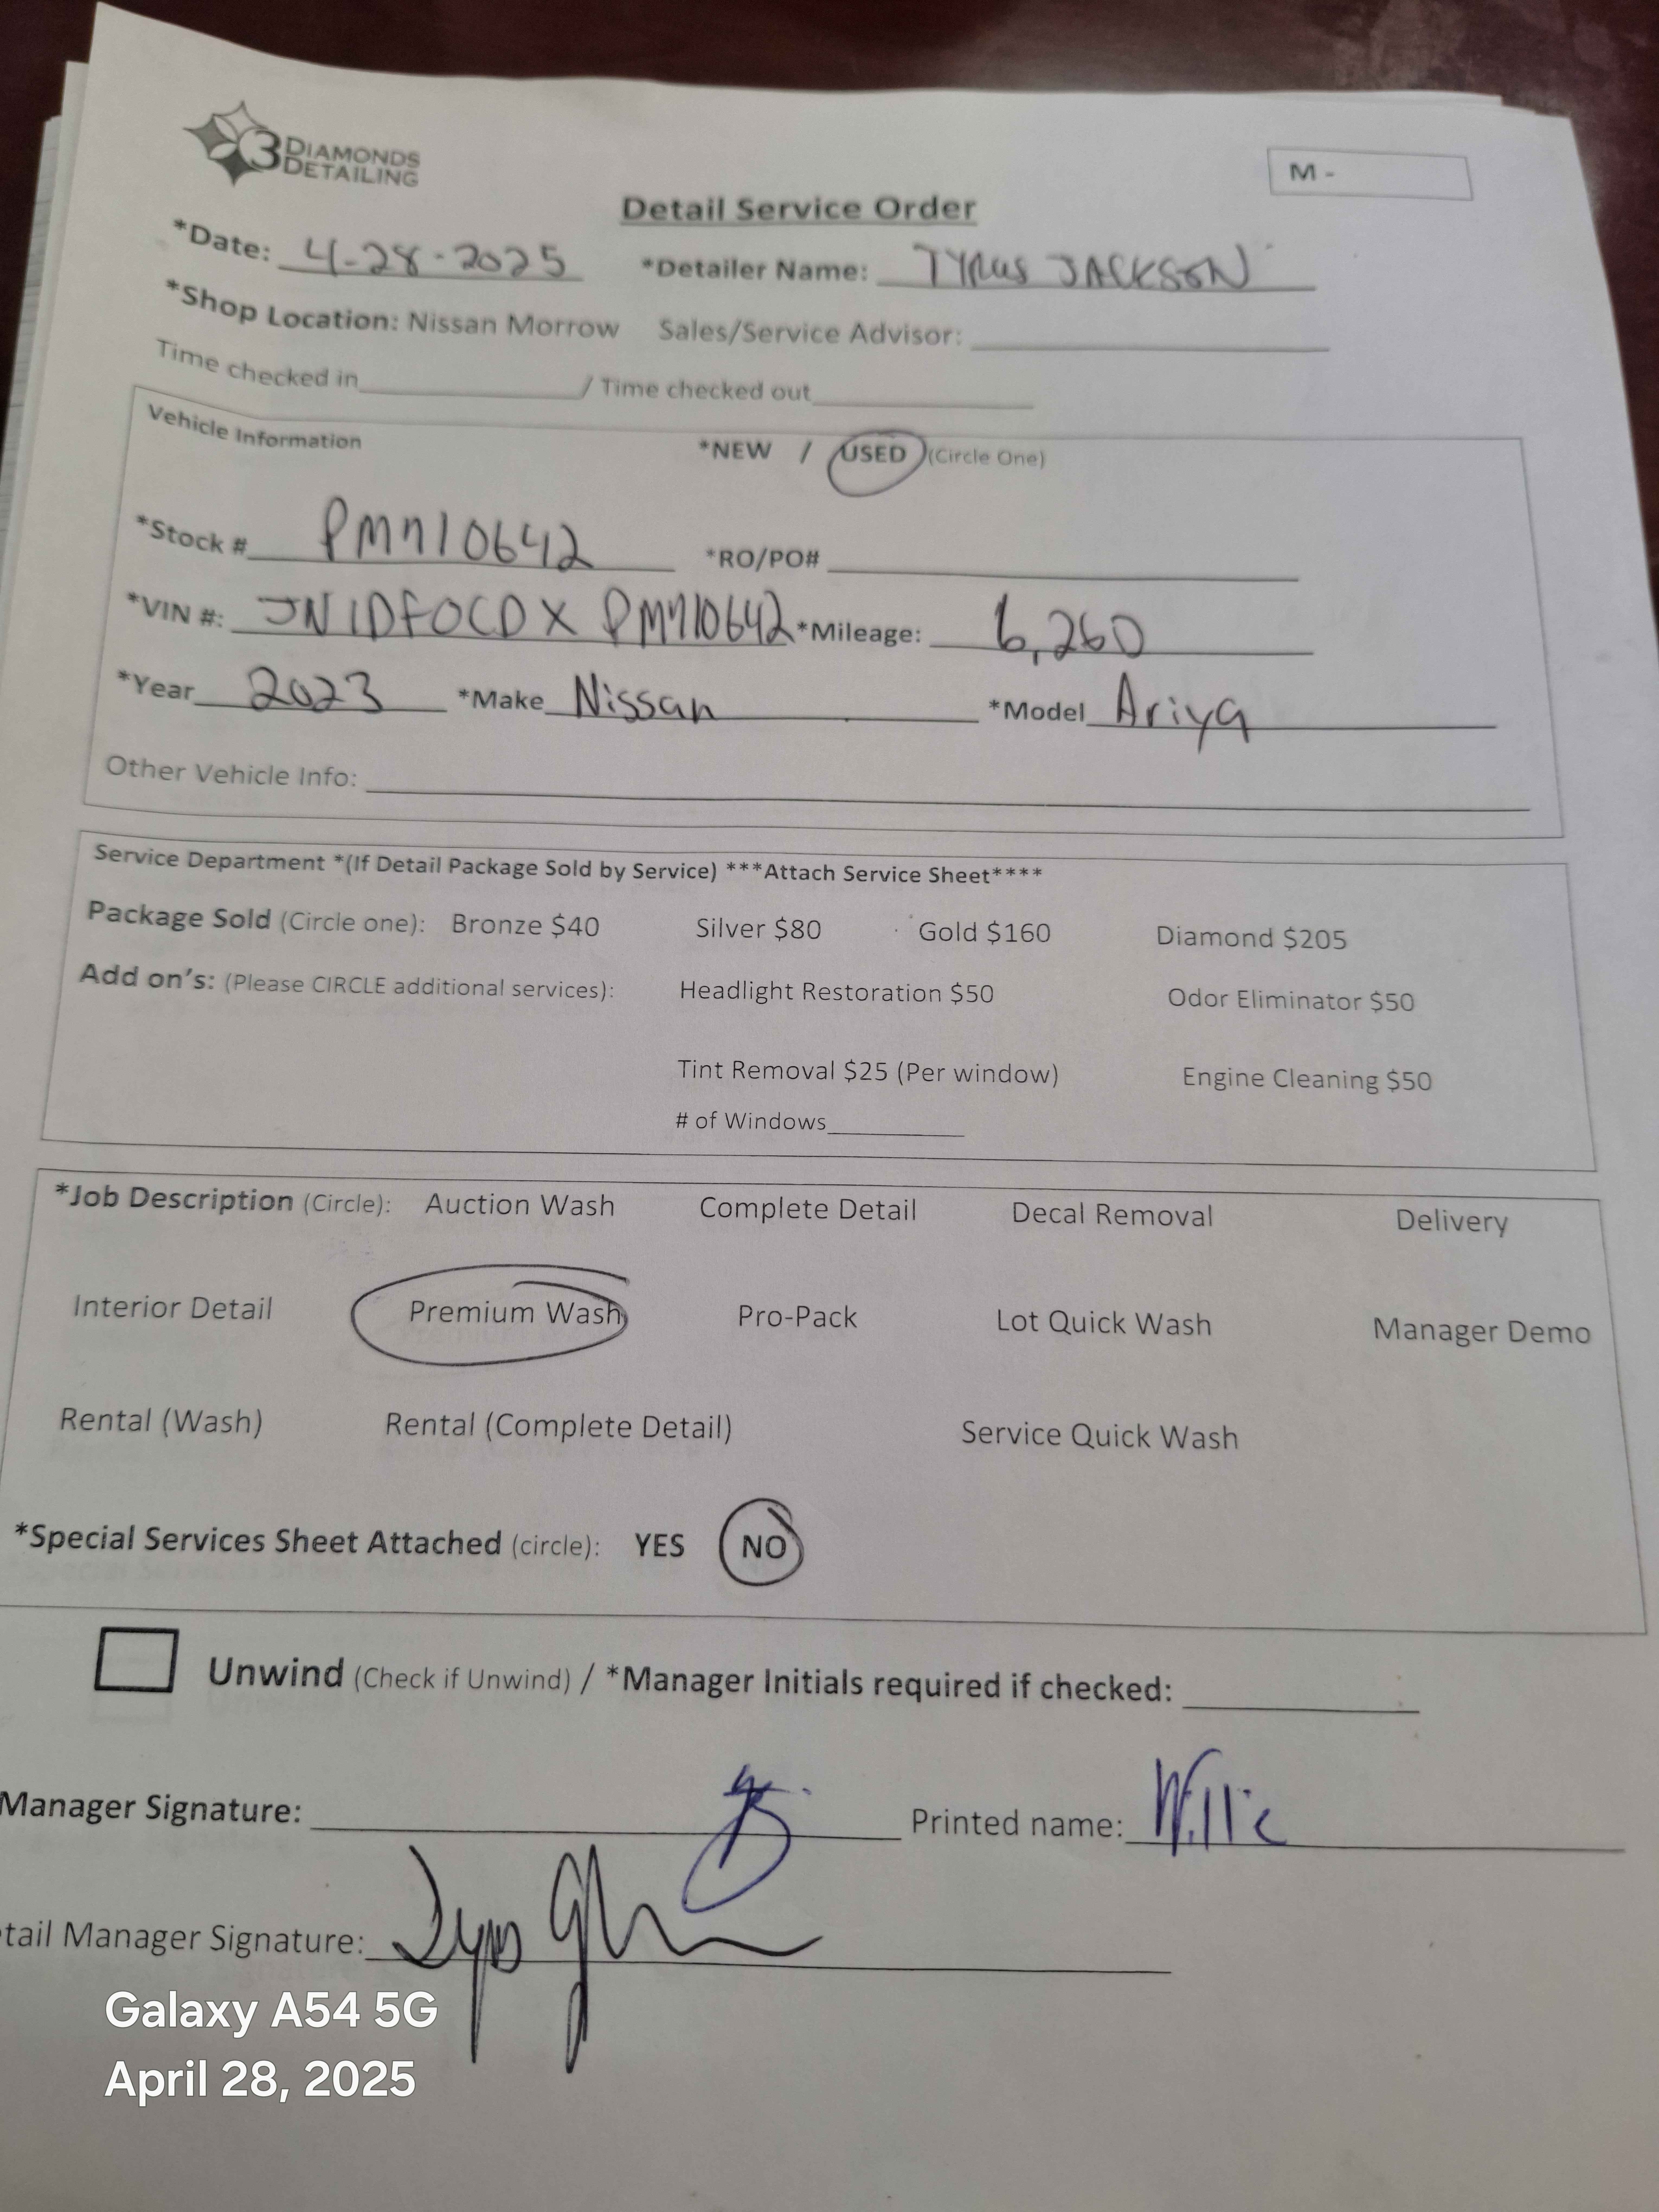 3 DIAMONDS
DETAILING
M -
Detail Service Order
*Date: 4-28-2025 *Detailer Name: TYRUS JACKSON
*Shop Location: Nissan Morrow Sales/Service Advisor:
Time checked in / Time checked out
Vehicle Information *NEW / USED (Circle One)
*Stock # PM710642 *RO/PO#
*VIN #: JN1DF0CDXPM710642 *Mileage: 6,260
*Year 2023 *Make Nissan *Model Ariya
Other Vehicle Info:
Service Department *(If Detail Package Sold by Service) ***Attach Service Sheet****
Package Sold (Circle one): Bronze $40 Silver $80 Gold $160 Diamond $205
Add on's: (Please CIRCLE additional services): Headlight Restoration $50 Odor Eliminator $50
Tint Removal $25 (Per window) Engine Cleaning $50
# of Windows
*Job Description (Circle): Auction Wash Complete Detail Decal Removal Delivery
Interior Detail Premium Wash Pro-Pack Lot Quick Wash Manager Demo
Rental (Wash) Rental (Complete Detail) Service Quick Wash
*Special Services Sheet Attached (circle): YES NO
Unwind (Check if Unwind) / *Manager Initials required if checked:
Manager Signature: Printed name: Willie
tail Manager Signature:
Galaxy A54 5G
April 28, 2025